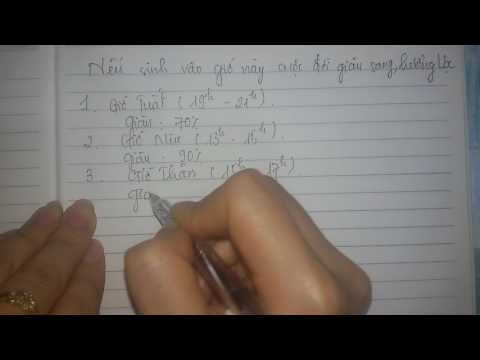 Nếu sinh vào giờ này cuộc đời giàu sang, hưởng lộc
1. Giờ Tuất (19h - 21h).
giàu : 70%
2. Giờ Mùi (13h - 15h).
giàu : 90%
3. Giờ Thân (15h - 17h).
gia